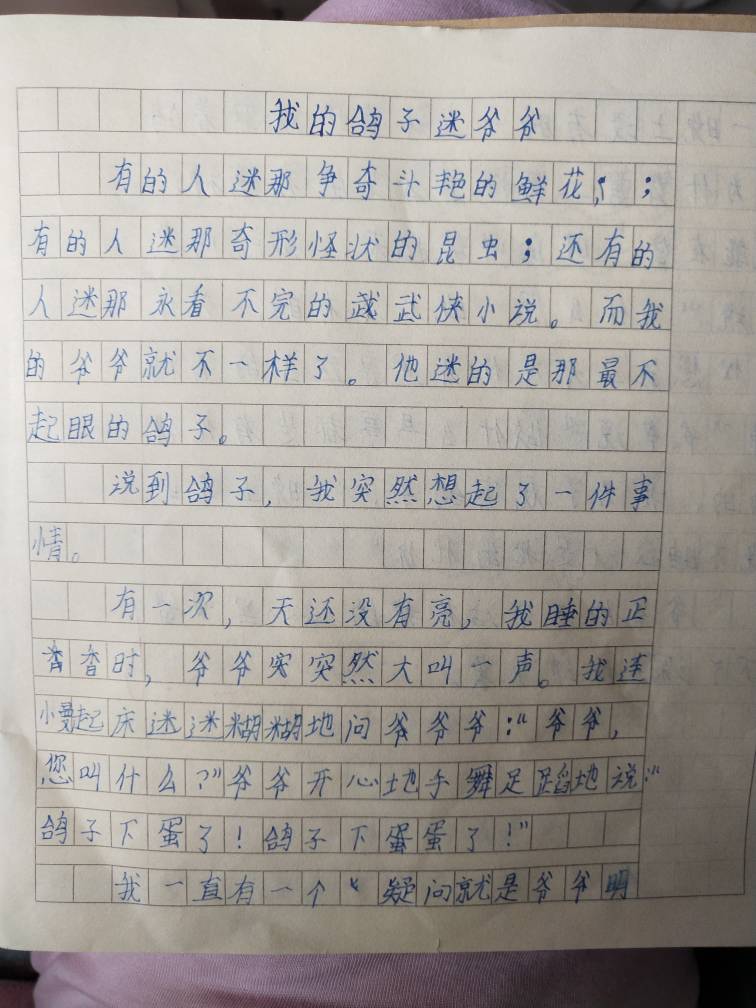 我的鸽子迷爷爷
有的人迷那争奇斗艳的鲜花；；
有的人迷那奇形怪状的昆虫；还有的
人迷那永看不完的武武侠小说。而我
的爷爷就不一样了。他迷的是那最不
起眼的鸽子。
说到鸽子，我突然想起了一件事
情。
有一次，天还没有亮，我睡的正
香香时，爷爷突突然大叫一声。我连
小慢起床迷迷糊糊地问爷爷爷：“爷爷，
您叫什么？”爷爷开心地手舞足蹈地说：“
鸽子下蛋了！鸽子下蛋蛋了！”
我一直有一个“疑问就是爷爷明